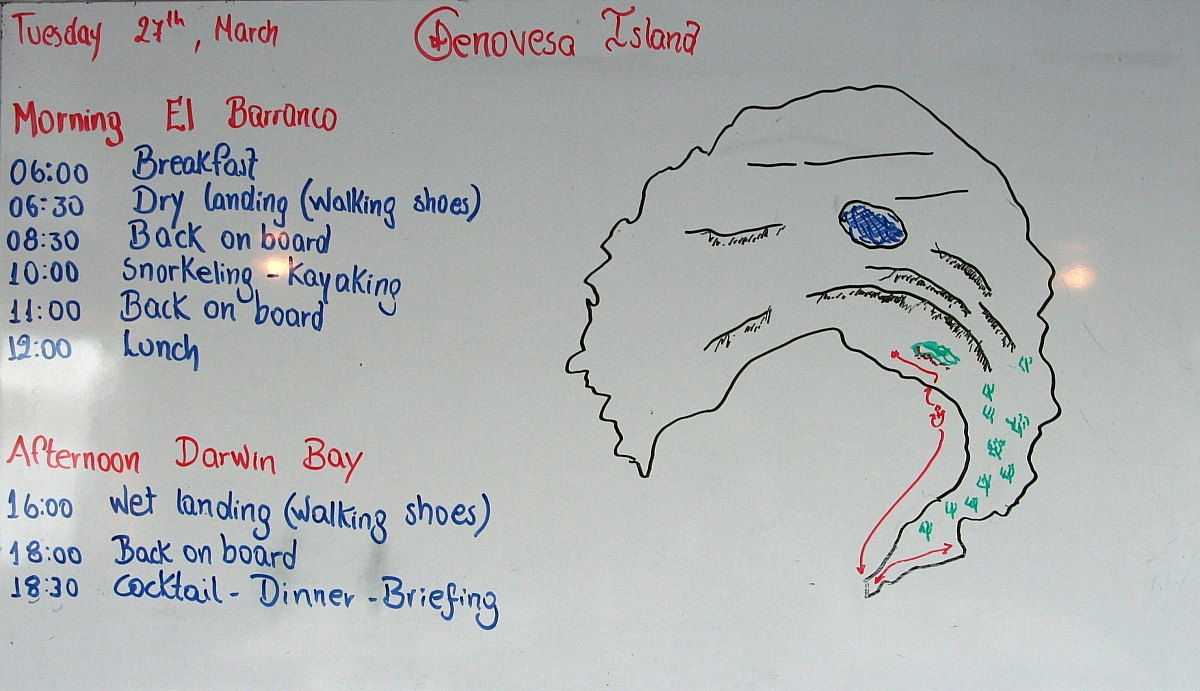 Tuesday 27th, March
Genovesa Island
Morning El Barranco
06:00 Breakfast
06:30 Dry landing (walking shoes)
08:30 Back on board
10:00 Snorkeling - Kayaking
11:00 Back on board
12:00 Lunch
Afternoon Darwin Bay
16:00 Wet landing (walking shoes)
18:00 Back on board
18:30 Cocktail - Dinner - Briefing